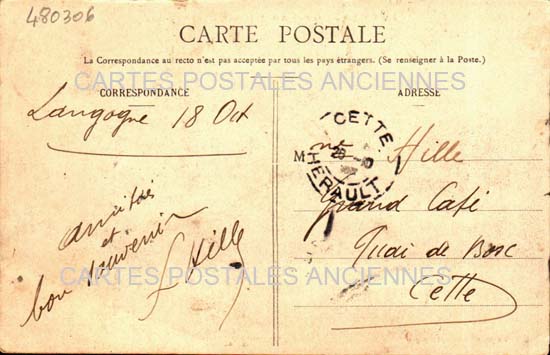 480306
CARTE POSTALE
La Correspondance au recto n'est pas acceptée par tous les pays étrangers. (Se renseigner à la Poste.)
CARTES POSTALES ANCIENNES
CORRESPONDANCE
Langogne 18 Oct
amitiés
et
bon souvenir
Hille
ADRESSE
CETTE
HERAULT
M Hille
Grand Café
Quai de Bosc
Cette
CARTES POSTALES ANCIENNES